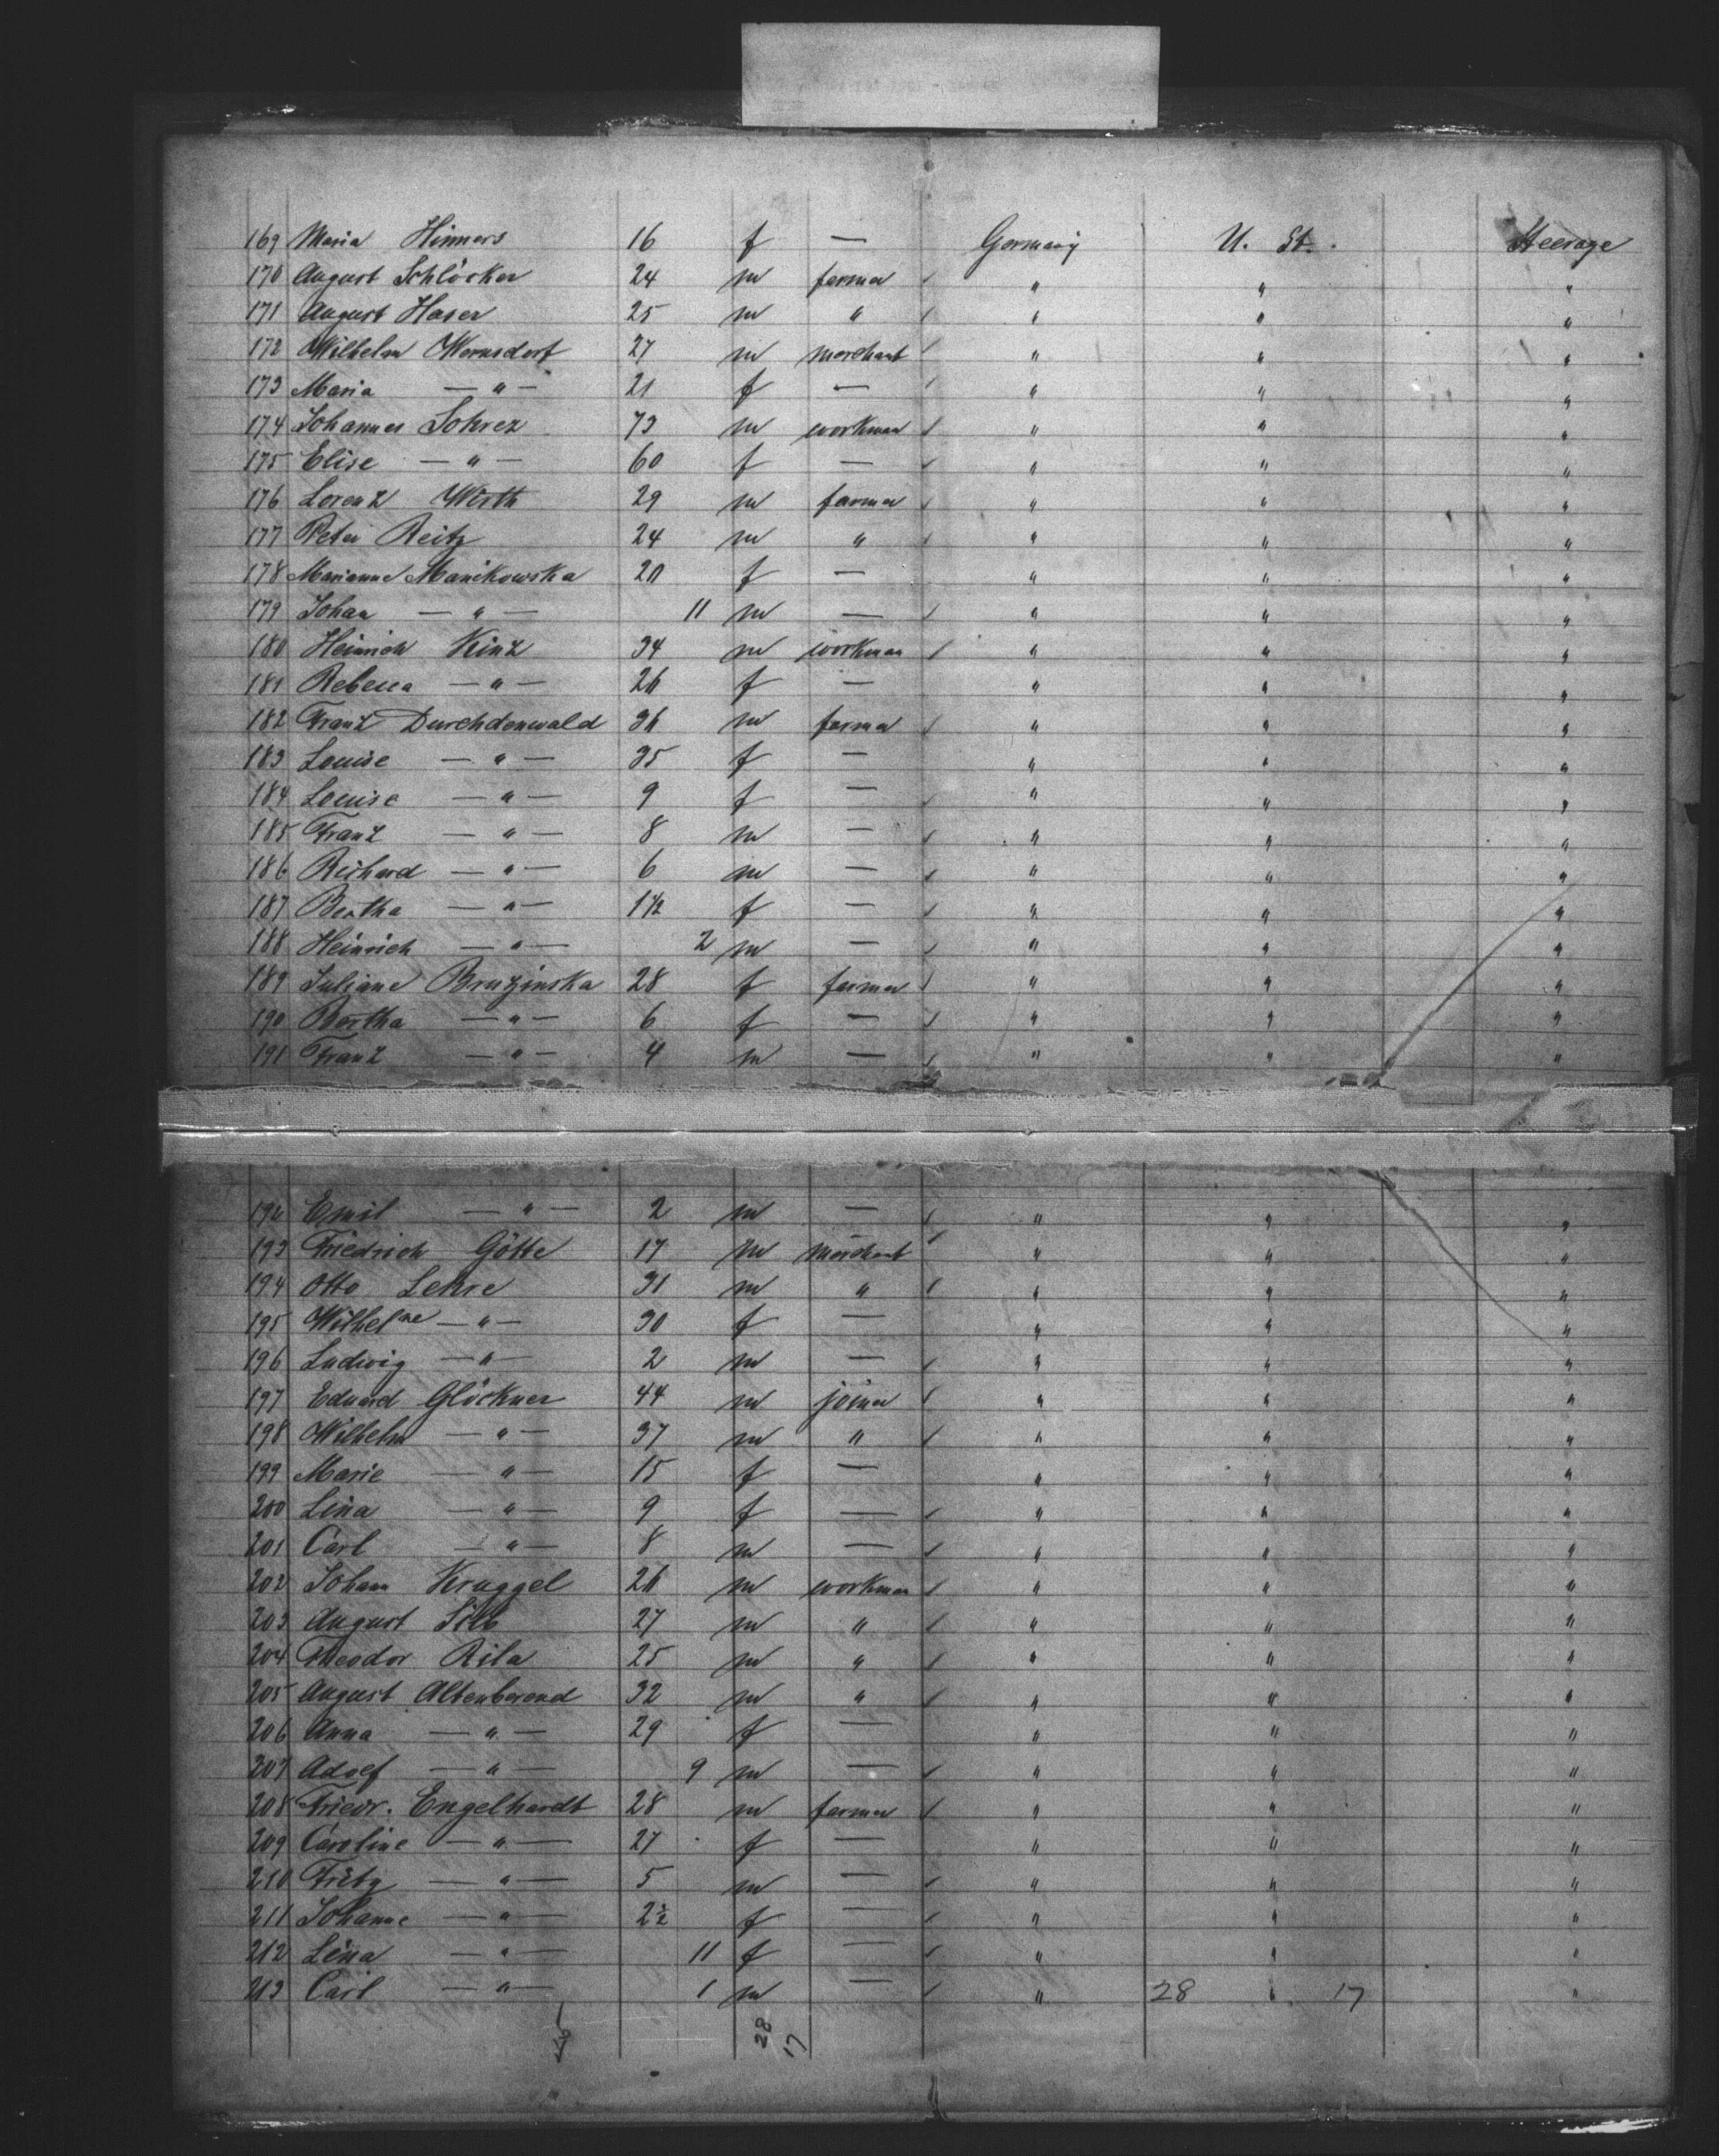 169 Maria Hinners 16 f — Germany U. St. Steerage
170 August Schlöcker 24 m farmer " " "
171 August Haser 25 m " " " "
172 Wilhelm Wernsdorf 27 m merchant " " "
173 Maria — " — 21 f — " " "
174 Johannes Sohrez 73 m workman " " "
175 Elise — " — 60 f — " " "
176 Lorenz Wirth 29 m farmer " " "
177 Peter Reitz 24 m " " " "
178 Marianne Manikowska 20 f — " " "
179 Johan — " — 11 m — " " "
180 Heinrich Kinz 34 m workman " " "
181 Rebecca — " — 26 f — " " "
182 Franz Durchdenwald 36 m farmer " " "
183 Louise — " — 35 f — " " "
184 Louise — " — 9 f — " " "
185 Franz — " — 8 m — " " "
186 Richard — " — 6 m — " " "
187 Bertha — " — 1 1/2 f — " " "
188 Heinrich — " — 2 m — " " "
189 Juliane Bruzinska 28 f farmer " " "
190 Bertha — " — 6 f — " " "
191 Franz — " — 4 m — " " "
192 Emil — " — 2 m — " " "
193 Friedrich Götte 17 m merchant " " "
194 Otto Lehre 31 m " " " "
195 Wilhelne — " — 30 f — " " "
196 Ludwig — " — 2 m — " " "
197 Eduard Glöckner 44 m joiner " " "
198 Wilhelm — " — 37 m " " " "
199 Marie — " — 15 f — " " "
200 Lina — " — 9 f — " " "
201 Carl — " — 8 m — " " "
202 Johann Kruggel 26 m workman " " "
203 August 27 m " " " "
204 Theodor Rila 25 m " " " "
205 August Altenberend 32 m " " " "
206 Anna — " — 29 f — " " "
207 Adolf — " — 9 m — " " "
208 Friedr. Engelhardt 28 m farmer " " "
209 Caroline — " — 27 f — " " "
210 Fritz — " — 5 m — " " "
211 Johanne — " — 2 1/2 f — " " "
212 Lina — " — 11 f — " " "
213 Carl — " — 1 m — " 28 " 17 "
45 28
17